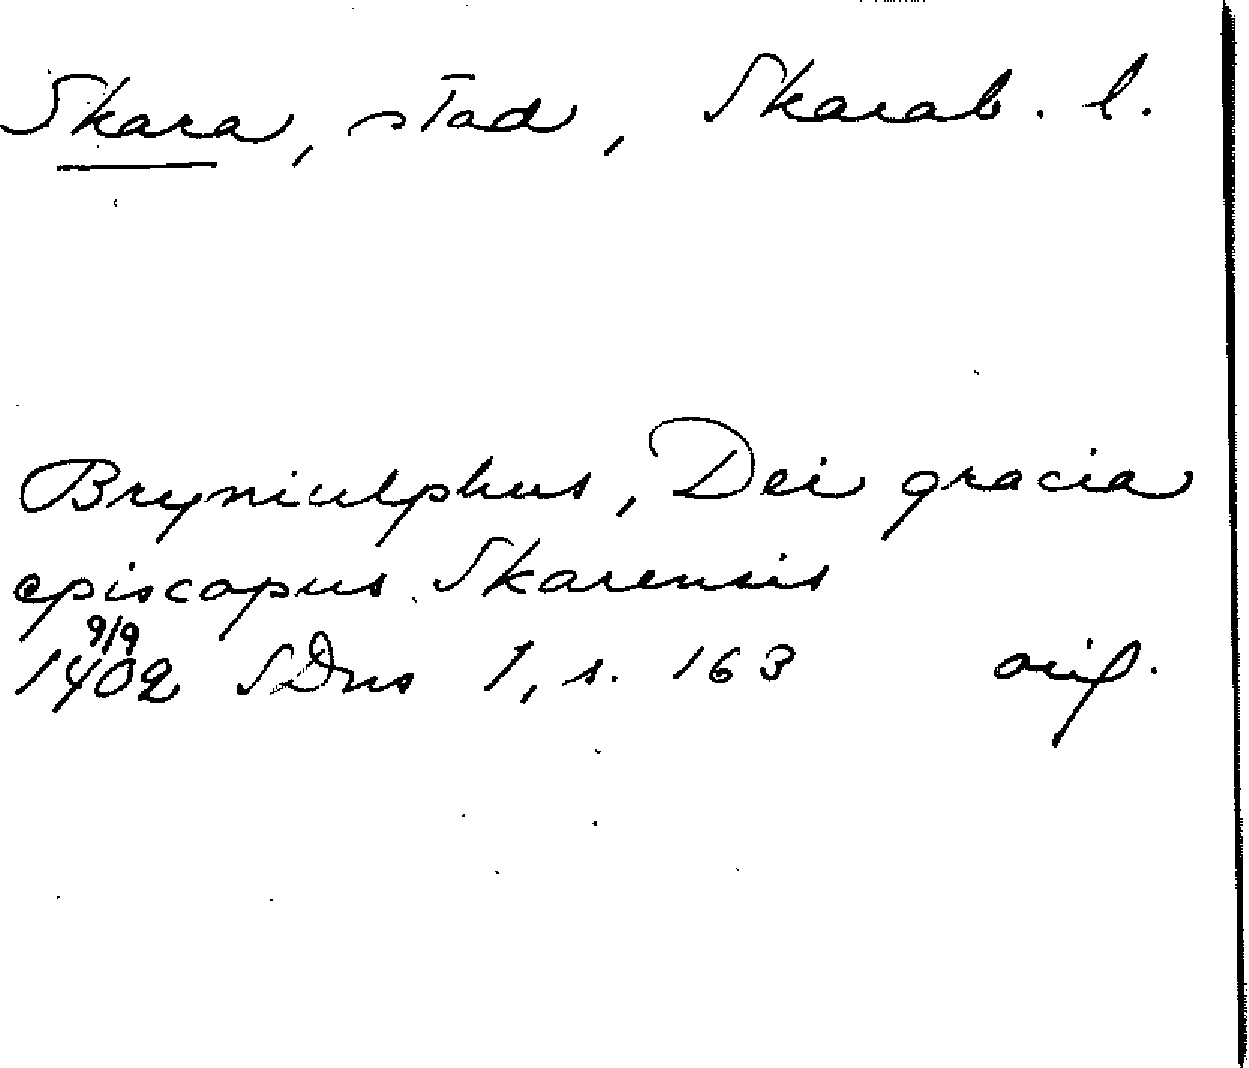 Skara, stad, Skarab. l.
Bryniulphus, Dei gracia
episcopus Skarensis
9/9
1402 SDns 1, s. 163 orig.